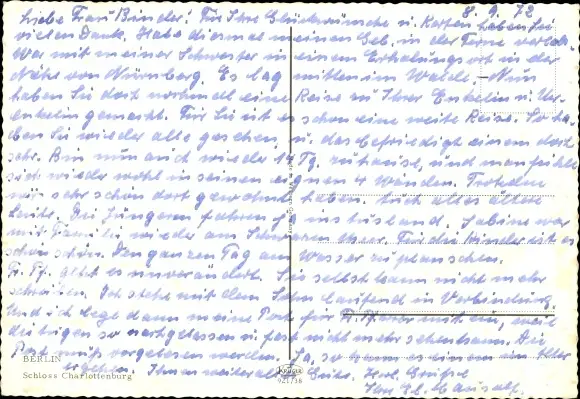 8. 9. 72
Liebe Frau Binder! Für Ihre Glückwünsche u. Karten haben Sie
vielen Dank. Habe diesmal meinen Geb. in der Ferne verlebt.
War mit meiner Schwester in einem Erholungsort in der
Nähe von Nürnberg. Es lag mitten im Walde. – Nun
haben Sie doch nochmal eine Reise zu Ihrer Enkelin u. Ur-
enkelin gemacht. Für Sie ist es schon eine weite Reise. So ha-
ben Sie wieder alle gesehen, u. das befriedigt einem doch
sehr. Bin nun auch wieder Tg. zuhause, und man fühlt
sich wieder wohl in seinen eignen 4 Wänden. Trotzdem
wir sehr schön dort gewohnt haben. Auch alles ältere
Leute. Die Jüngeren fahren ja ins Ausland. Sabine war
mit Familie wieder am Schwarzen Meer. Für die Kinder ist es
schon schön. Den ganzen Tag am Wasser zu planschen.
Fr. Pf. geht es unverändert. Sie selbst kann nicht mehr
schreiben. Ich stehe mit dem Sohn laufend in Verbindung.
Und ich lege dann meine Post für mit ein, weil
die Augen so nachgelassen u. fast nicht mehr sehen kann. Die
Post muß vorgelesen werden. Ja, so kann es einem im Alter
ergehen. Ihnen weiter alles Gute. Herzl. Grüße
Ihre
BERLIN
Schloss Charlottenburg
Krüger
921/38